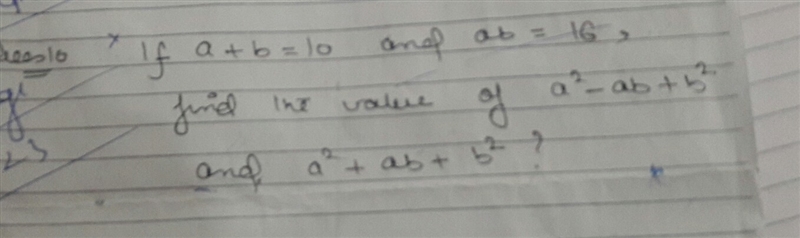 × If a + b = 10 and ab = 16,
find the value of a² - ab + b²
and a² + ab + b² ?